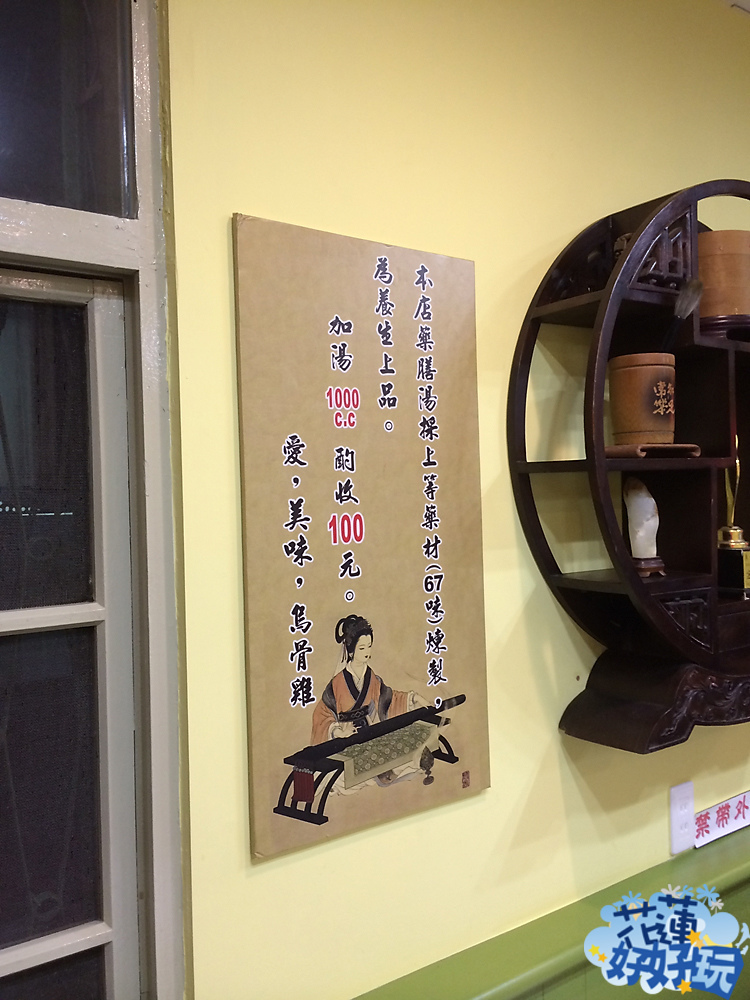 本店藥膳湯採上等藥材(67味)煉製，
為養生上品。
加陽 1000 c.c 酌收100元。
愛，美味，烏骨雞
知足
常樂
禁帶外
花蓮
好好玩